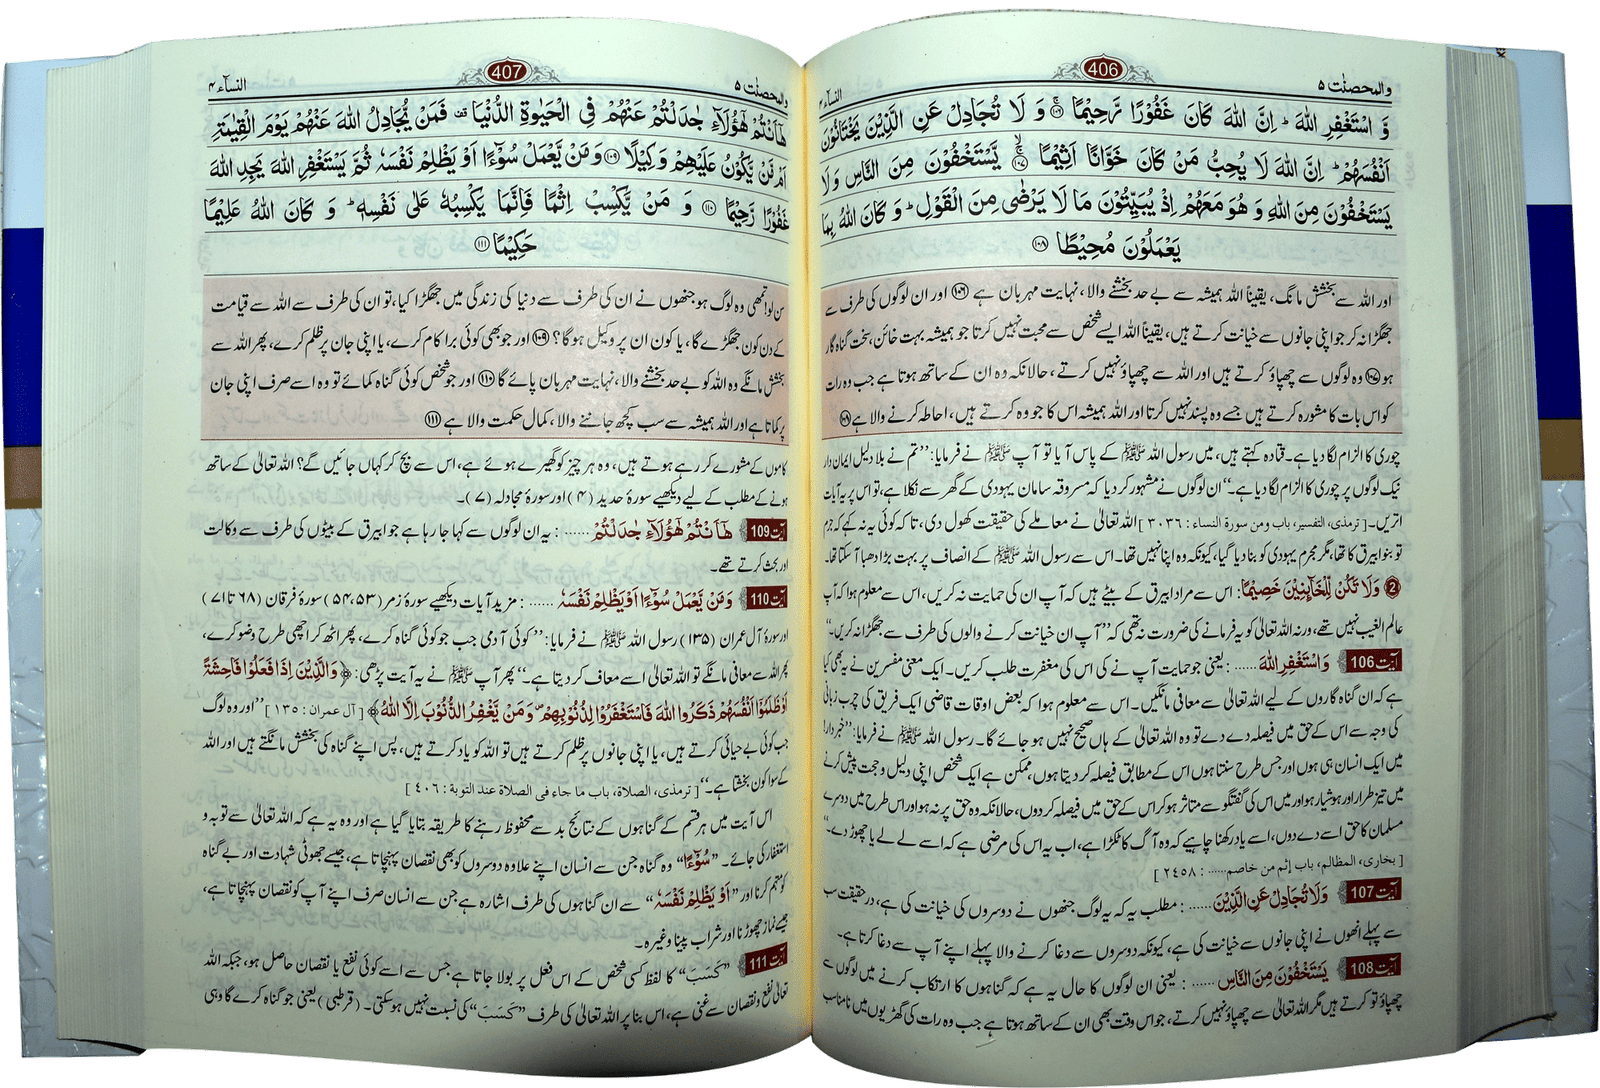 والمحصنٰت ۵
406
النساء ۴
وَّ اسْتَغْفِرِ اللّٰهَ ؕ اِنَّ اللّٰهَ كَانَ غَفُوْرًا رَّحِيْمًا ﴿۱۰۶﴾ وَ لَا تُجَادِلْ عَنِ الَّذِيْنَ يَخْتَانُوْنَ
اَنْفُسَهُمْ ؕ اِنَّ اللّٰهَ لَا يُحِبُّ مَنْ كَانَ خَوَّانًا اَثِيْمًا ﴿۱۰۷﴾ يَّسْتَخْفُوْنَ مِنَ النَّاسِ وَ لَا
يَسْتَخْفُوْنَ مِنَ اللّٰهِ وَ هُوَ مَعَهُمْ اِذْ يُبَيِّتُوْنَ مَا لَا يَرْضٰى مِنَ الْقَوْلِ ؕ وَ كَانَ اللّٰهُ بِمَا
يَعْمَلُوْنَ مُحِيْطًا ﴿۱۰۸﴾
اور اللہ سے بخشش مانگ، یقیناً اللہ ہمیشہ سے بے حد بخشنے والا، نہایت مہربان ہے ﴿۱۰۶﴾ اور ان لوگوں کی طرف سے
جھگڑا نہ کر جو اپنی جانوں سے خیانت کرتے ہیں، یقیناً اللہ ایسے شخص سے محبت نہیں کرتا جو ہمیشہ بہت خائن، سخت گناہ گار
ہو ﴿۱۰۷﴾ وہ لوگوں سے چھپاؤ کرتے ہیں اور اللہ سے چھپاؤ نہیں کرتے، حالانکہ وہ ان کے ساتھ ہوتا ہے جب وہ رات
کو اس بات کا مشورہ کرتے ہیں جسے وہ پسند نہیں کرتا اور اللہ ہمیشہ اس کا جو وہ کرتے ہیں، احاطہ کرنے والا ہے ﴿۱۰۸﴾
چوری کا الزام لگا دیا ہے۔ قتادہ کہتے ہیں، میں رسول اللہ ﷺ کے پاس آیا تو آپ ﷺ نے فرمایا: ’’تم نے بلا دلیل ایمان دار
نیک لوگوں پر چوری کا الزام لگا دیا ہے۔‘‘ ان لوگوں نے مشہور کر دیا کہ مسروقہ سامان یہودی کے گھر سے نکلا ہے، تو اس پر یہ آیات
اتریں۔ [ ترمذی، التفسیر، باب ومن سورة النساء : ۳۰۳۶ ] اللہ تعالیٰ نے معاملے کی حقیقت کھول دی، تاکہ کوئی یہ نہ کہے کہ جرم
تو بنو ابیرق کا تھا، مگر مجرم یہودی کو بنا دیا گیا، کیونکہ وہ اپنا نہیں تھا۔ اس سے رسول اللہ ﷺ کے انصاف پر بہت بڑا دھبا آ سکتا تھا۔
2 وَ لَا تَكُنْ لِّلْخَآىِٕنِيْنَ خَصِيْمًا: اس سے مراد ابیرق کے بیٹے ہیں کہ آپ ان کی حمایت نہ کریں، اس سے معلوم ہوا کہ آپ
عالم الغیب نہیں تھے، ورنہ اللہ تعالیٰ کو یہ فرمانے کی ضرورت نہ تھی کہ ’’آپ ان خیانت کرنے والوں کی طرف سے جھگڑا نہ کریں۔‘‘
آیت 106 وَ اسْتَغْفِرِ اللّٰهَ ...... : یعنی جو حمایت آپ نے کی اس کی مغفرت طلب کریں۔ ایک معنی مفسرین نے یہ بھی کیا
ہے کہ ان گناہ گاروں کے لیے اللہ تعالیٰ سے معافی مانگیں۔ اس سے معلوم ہوا کہ بعض اوقات قاضی ایک فریق کی چرب زبانی
کی وجہ سے اس کے حق میں فیصلہ دے دے تو وہ اللہ تعالیٰ کے ہاں صحیح نہیں ہو جائے گا۔ رسول اللہ ﷺ نے فرمایا: ’’خبردار!
میں ایک انسان ہی ہوں اور جس طرح سنتا ہوں اس کے مطابق فیصلہ کر دیتا ہوں، ممکن ہے ایک شخص اپنی دلیل و حجت پیش کرنے
میں تیز طرار اور ہوشیار ہو اور میں اس کی گفتگو سے متاثر ہو کر اس کے حق میں فیصلہ کر دوں، حالانکہ وہ حق پر نہ ہو اور اس طرح میں دوسرے
مسلمان کا حق اسے دے دوں، اسے یاد رکھنا چاہیے کہ وہ آگ کا ٹکڑا ہے، اب یہ اس کی مرضی ہے کہ اسے لے لے یا چھوڑ دے۔‘‘
[ بخاری، المظالم، باب إثم من خاصم...... : ۲۴۵۸ ]
آیت 107 وَ لَا تُجَادِلْ عَنِ الَّذِيْنَ ...... : مطلب یہ کہ یہ لوگ جنھوں نے دوسروں کی خیانت کی ہے، در حقیقت سب
سے پہلے انھوں نے اپنی جانوں سے خیانت کی ہے، کیونکہ دوسروں سے دغا کرنے والا پہلے اپنے آپ سے دغا کرتا ہے۔
آیت 108 يَسْتَخْفُوْنَ مِنَ النَّاسِ ...... : یعنی ان لوگوں کا حال یہ ہے کہ گناہوں کا ارتکاب کرنے میں لوگوں سے
چھپاؤ تو کرتے ہیں مگر اللہ تعالیٰ سے چھپاؤ نہیں کرتے، جو اس وقت بھی ان کے ساتھ ہوتا ہے جب وہ رات کی گھڑیوں میں نامناسب
والمحصنٰت ۵
407
النساء ۴
هٰۤاَنْتُمْ هٰۤؤُلَآءِ جٰدَلْتُمْ عَنْهُمْ فِي الْحَيٰوةِ الدُّنْيَا ۫ فَمَنْ يُّجَادِلُ اللّٰهَ عَنْهُمْ يَوْمَ الْقِيٰمَةِ
اَمْ مَّنْ يَّكُوْنُ عَلَيْهِمْ وَكِيْلًا ﴿۱۰۹﴾ وَ مَنْ يَّعْمَلْ سُوْٓءًا اَوْ يَظْلِمْ نَفْسَهٗ ثُمَّ يَسْتَغْفِرِ اللّٰهَ يَجِدِ اللّٰهَ
غَفُوْرًا رَّحِيْمًا ﴿۱۱۰﴾ وَ مَنْ يَّكْسِبْ اِثْمًا فَاِنَّمَا يَكْسِبُهٗ عَلٰى نَفْسِهٖ ؕ وَ كَانَ اللّٰهُ عَلِيْمًا
حَكِيْمًا ﴿۱۱۱﴾
سن لو! تمھی وہ لوگ ہو جنھوں نے ان کی طرف سے دنیا کی زندگی میں جھگڑا کیا، تو ان کی طرف سے اللہ سے قیامت
کے دن کون جھگڑے گا، یا کون ان پر وکیل ہوگا؟ ﴿۱۰۹﴾ اور جو بھی کوئی برا کام کرے، یا اپنی جان پر ظلم کرے، پھر اللہ سے
بخشش مانگے وہ اللہ کو بے حد بخشنے والا، نہایت مہربان پائے گا ﴿۱۱۰﴾ اور جو شخص کوئی گناہ کمائے تو وہ اسے صرف اپنی جان
پر کماتا ہے اور اللہ ہمیشہ سے سب کچھ جاننے والا، کمال حکمت والا ہے ﴿۱۱۱﴾
کاموں کے مشورے کر رہے ہوتے ہیں، وہ ہر چیز کو گھیرے ہوئے ہے، اس سے بچ کر کہاں جائیں گے؟ اللہ تعالیٰ کے ساتھ
ہونے کے مطلب کے لیے دیکھیے سورۂ حدید (۴) اور سورۂ مجادلہ (۷)۔
آیت 109 هٰۤاَنْتُمْ هٰۤؤُلَآءِ جٰدَلْتُمْ ...... : یہ ان لوگوں سے کہا جا رہا ہے جو ابیرق کے بیٹوں کی طرف سے وکالت
اور بحث کرتے تھے۔
آیت 110 وَ مَنْ يَّعْمَلْ سُوْٓءًا اَوْ يَظْلِمْ نَفْسَهٗ ...... : مزید آیات دیکھیے سورۂ زمر (۵۳، ۵۴) سورۂ فرقان (۶۸ تا ۷۱)
اور سورۂ آل عمران (۱۳۵) رسول اللہ ﷺ نے فرمایا: ’’کوئی آدمی جب جو کوئی گناہ کرے، پھر اٹھ کر اچھی طرح وضو کرے،
پھر اللہ سے معافی مانگے تو اللہ تعالیٰ اسے معاف کر دیتا ہے۔‘‘ پھر آپ ﷺ نے یہ آیت پڑھی: ﴿وَ الَّذِيْنَ اِذَا فَعَلُوْا فَاحِشَةً
اَوْ ظَلَمُوْۤا اَنْفُسَهُمْ ذَكَرُوا اللّٰهَ فَاسْتَغْفَرُوْا لِذُنُوْبِهِمْ ۪ وَ مَنْ يَّغْفِرُ الذُّنُوْبَ اِلَّا اللّٰهُ﴾ [ آل عمران : ۱۳۵ ] ’’اور وہ لوگ
جب کوئی بے حیائی کرتے ہیں، یا اپنی جانوں پر ظلم کرتے ہیں تو اللہ کو یاد کرتے ہیں، پس اپنے گناہ کی بخشش مانگتے ہیں اور اللہ
کے سوا کون بخشتا ہے۔‘‘ [ ترمذی، الصلاة، باب ما جاء فی الصلاة عند التوبة : ۴۰۶ ]
اس آیت میں ہر قسم کے گناہوں کے نتائج بد سے محفوظ رہنے کا طریقہ بتایا گیا ہے اور وہ یہ ہے کہ اللہ تعالیٰ سے توبہ و
استغفار کی جائے۔ ’’سُوْٓءًا‘‘ وہ گناہ جن سے انسان اپنے علاوہ دوسروں کو بھی نقصان پہنچاتا ہے، جیسے جھوٹی شہادت اور بے گناہ
کو متہم کرنا اور ’’اَوْ يَظْلِمْ نَفْسَهٗ‘‘ سے ان گناہوں کی طرف اشارہ ہے جن سے انسان صرف اپنے آپ کو نقصان پہنچاتا ہے،
جیسے نماز چھوڑنا اور شراب پینا وغیرہ۔
آیت 111 ’’كَسَبَ‘‘ کا لفظ کسی شخص کے اس فعل پر بولا جاتا ہے جس سے اسے کوئی نفع یا نقصان حاصل ہو، جبکہ اللہ
تعالیٰ نفع و نقصان سے غنی ہے، اس بنا پر اللہ تعالیٰ کی طرف ’’كَسَبَ‘‘ کی نسبت نہیں ہو سکتی۔ (قرطبی) یعنی جو گناہ کرے گا وہی